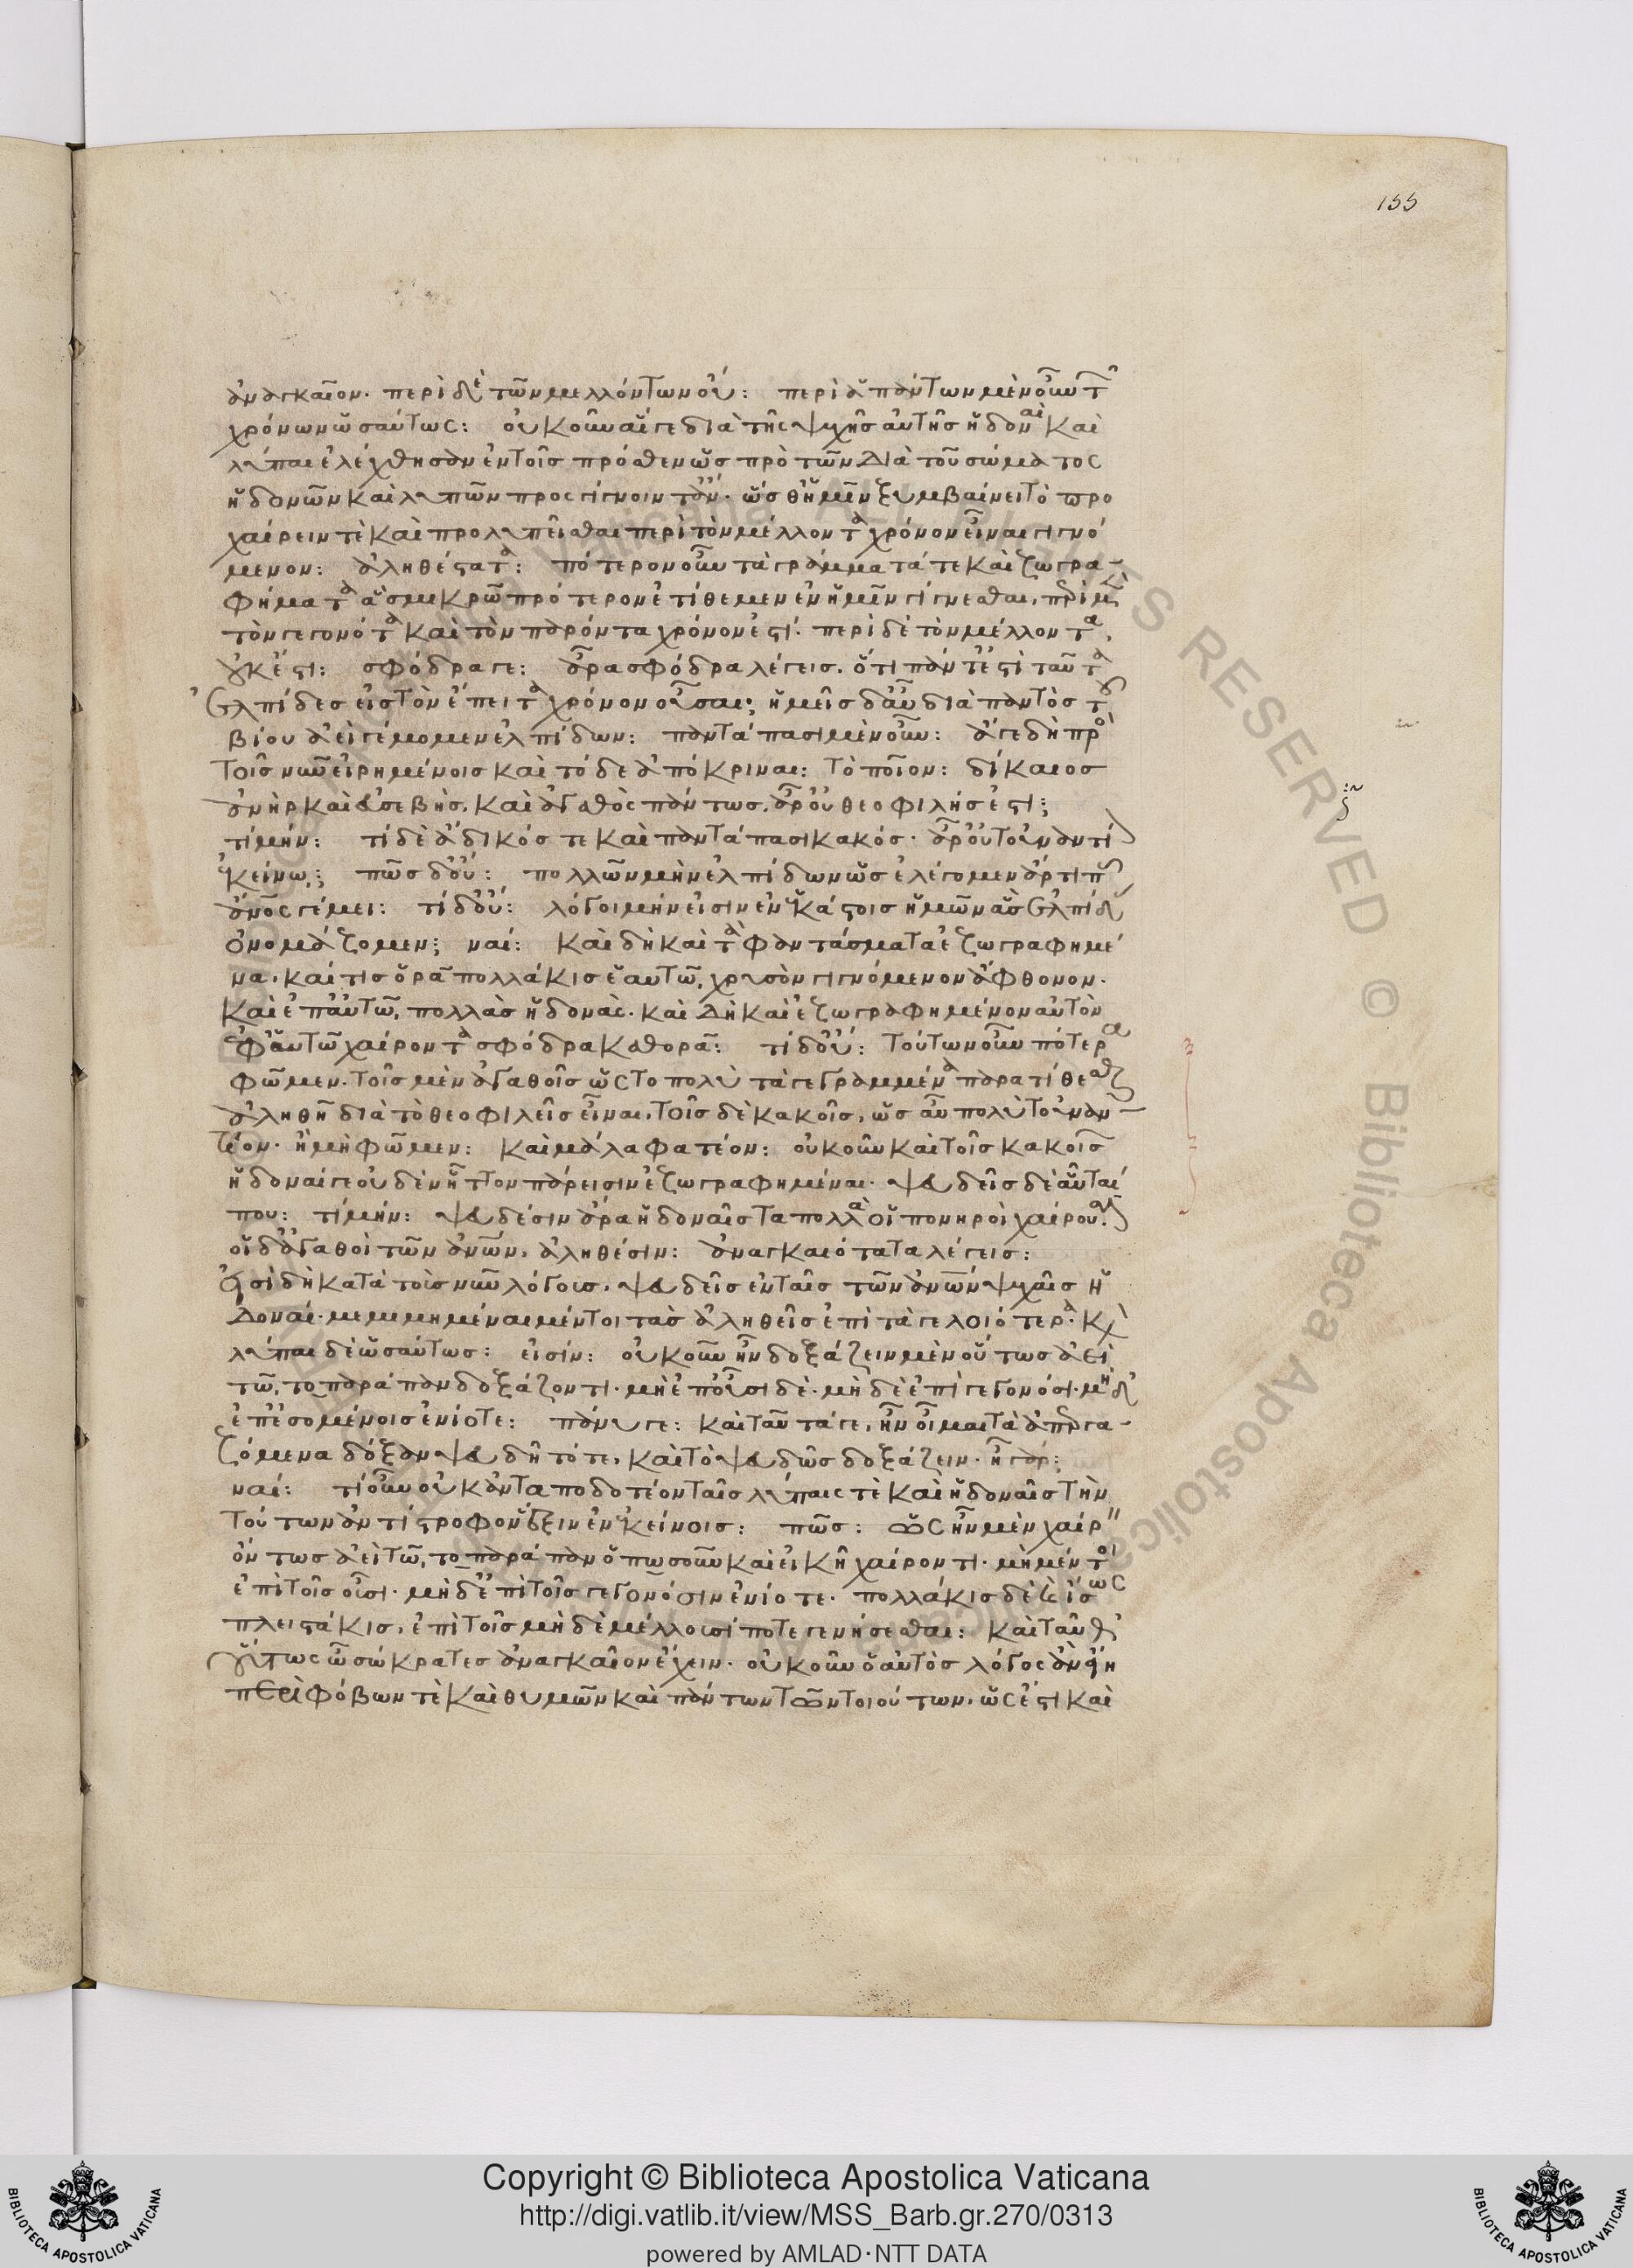 155
ἀναγκαῖον· περὶ δὲ τῶν μελλόντων οὔ: περὶ ἁπάντων μὲν οὖν τῶν
χρόνων ὡσαύτως: οὐκοῦν αἵ γε διὰ τῆς ψυχῆς αὐτῆς ἡδοναὶ καὶ
λύπαι ἐλέχθησαν ἐν τοῖς πρόσθεν ὡς πρὸ τῶν διὰ τοῦ σώματος
ἡδονῶν καὶ λυπῶν προσγίγνοιντ' ἄν· ὥσθ' ἡμῖν ξυμβαίνει τὸ προ
χαίρειν τὲ καὶ προλυπεῖσθαι περὶ τὸν μέλλοντα χρόνον εἶναι γιγνό
μενον: ἀληθέστατα: πότερον οὖν τὰ γράμματά τε καὶ ζωγρα-
φήματα ἃ σμικρῶ πρότερον ἐτίθεμεν ἐν ἡμῖν γίγνεσθαι, περὶ μὲν
τὸν γεγονότα καὶ τὸν παρόντα χρόνον ἐστί· περὶ δὲ τὸν μέλλοντα,
οὐκ ἔστι: σφόδρα γε: ἆρα σφόδρα λέγεις. ὅτι πάντ' ἐστὶ ταῦτα
ἐλπίδες εἰς τὸν ἔπειτα χρόνον οὖσαι; ἡμεῖς δ' αὖ διὰ παντὸς τοῦ
βίου ἀεὶ γέμομεν ἐλπίδων: παντάπασι μὲν οὖν: ἄγε δὴ πρὸς
τοῖς νῦν εἰρημένοις καὶ τόδε ἀπόκριναι: τὸ ποῖον: δίκαιος
ἀνὴρ καὶ εὐσεβὴς, καὶ ἀγαθὸς πάντως, ἆρ' οὐ θεοφιλής ἐστι;
τί μήν: τί δὲ ἄδικός τε καὶ παντάπασι κακός· ἆρ' οὐ τοὐναντίον
'κείνω; πῶς δ' οὔ: πολλῶν μὴν ἐλπίδων ὡς ἐλέγομεν ἄρτι πᾶς
ἄνος γέμει: τί δ' οὔ: λόγοι μήν εἰσιν ἐν ἑκάστοις ἡμῶν ἃς ἐλπίδας
ὀνομάζομεν; ναί: καὶ δὴ καὶ τὰ φαντάσματα ἐζωγραφημέ
να. καί τις ὁρᾶ πολλάκις ἑαυτῶ, χρυσὸν γιγνόμενον ἄφθονον·
καὶ ἐπ' αὐτῶ, πολλὰς ἡδονάς· καὶ δὴ καὶ ἐζωγραφημένον αὐτὸν
ἐφ' αὑτῶ χαίροντα σφόδρα καθορᾶ: τί δ' οὔ: τούτων οὖν πότερα
φῶμεν. τοῖς μὲν ἀγαθοῖς ὡς τὸ πολὺ τὰ γεγραμμένα παρατίθεσθαι
ἀληθῆ διὰ τὸ θεοφιλεῖς εἶναι. τοῖς δὲ κακοῖς, ὡς αὖ πολὺ τοὐναν-
τίον· ἢ μὴ φῶμεν: καὶ μάλα φατέον: οὐκοῦν καὶ τοῖς κακοῖς
ἡδοναί γε οὐδὲν ἧττον πάρεισιν ἐζωγραφημέναι· ψευδεῖς δὲ αὗταί
που: τί μήν: ψευδέσιν ἄρα ἡδοναῖς τὰ πολλὰ οἱ πονηροὶ χαίρουσιν·
οἱ δ' ἀγαθοὶ τῶν ἀνῶν, ἀληθέσιν: ἀναγκαιότατα λέγεις:
εἰσὶ δὴ κατὰ τοὺς νῦν λόγους, ψευδεῖς ἐν ταῖς τῶν ἀνῶν ψυχαῖς ἡ
δοναί· μεμιμημέναι μέντοι τὰς ἀληθεῖς ἐπὶ τὰ γελοιότερα· καὶ
λύπαι δὲ ὡσαύτως: εἰσίν: οὐκοῦν ἦν δοξάζειν μὲν οὕτως ἀεὶ
τῶ, τὸ παράπαν δοξάζοντι· μὴ ἐπ' οὖσι δὲ· μὴ δὲ ἐπὶ γεγονόσι· μὴ δὲ
ἐπ' ἐσομένοις ἐνίοτε: πάνυ γε: καὶ ταῦτά γε, ἦν οἶμαι τὰ ἀπεργα-
ζόμενα δόξαν ψευδῆ τότε, καὶ τὸ ψευδῶς δοξάζειν· ἦ γάρ:
ναί: τί οὖν οὐκ ἀνταποδοτέον ταῖς λύπαις τὲ καὶ ἡδοναῖς τὴν
τούτων ἀντίστροφον ἕξιν ἐν 'κείνοις: πῶς: ὡς ἦν μὲν χαίρειν
ὄντως ἀεὶ τῶ, τὸ παράπαν ὁπωσοῦν καὶ εἰκῆ χαίροντι· μὴ μέντοι
ἐπὶ τοῖς οὖσι· μὴ δ' ἐπὶ τοῖς γεγονόσιν ἐνίοτε· πολλάκις δὲ καὶ ἴσως
πλειστάκις, ἐπὶ τοῖς μὴ δὲ μέλλουσί ποτε γενήσεσθαι: καὶ ταῦθ'
οὕτως ὦ σώκρατες ἀναγκαῖον ἔχειν· οὐκοῦν ὁ αὐτὸς λόγος ἂν εἴη
περὶ φόβων τὲ καὶ θυμῶν καὶ πάντων τῶν τοιούτων, ὡς ἔστι καὶ
Copyright © Biblioteca Apostolica Vaticana
http://digi.vatlib.it/view/MSS_Barb.gr.270/0313
powered by AMLAD·NTT DATA